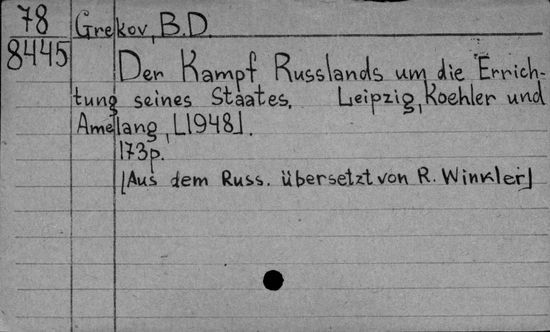 78
8445
Grekov, B.D.
Der Kampf Russlands um die Errich-
tung seines Staates. Leipzig, Koehler und
Amelang, [1948].
173p.
[Aus dem Russ. übersetzt von R. Winkler]